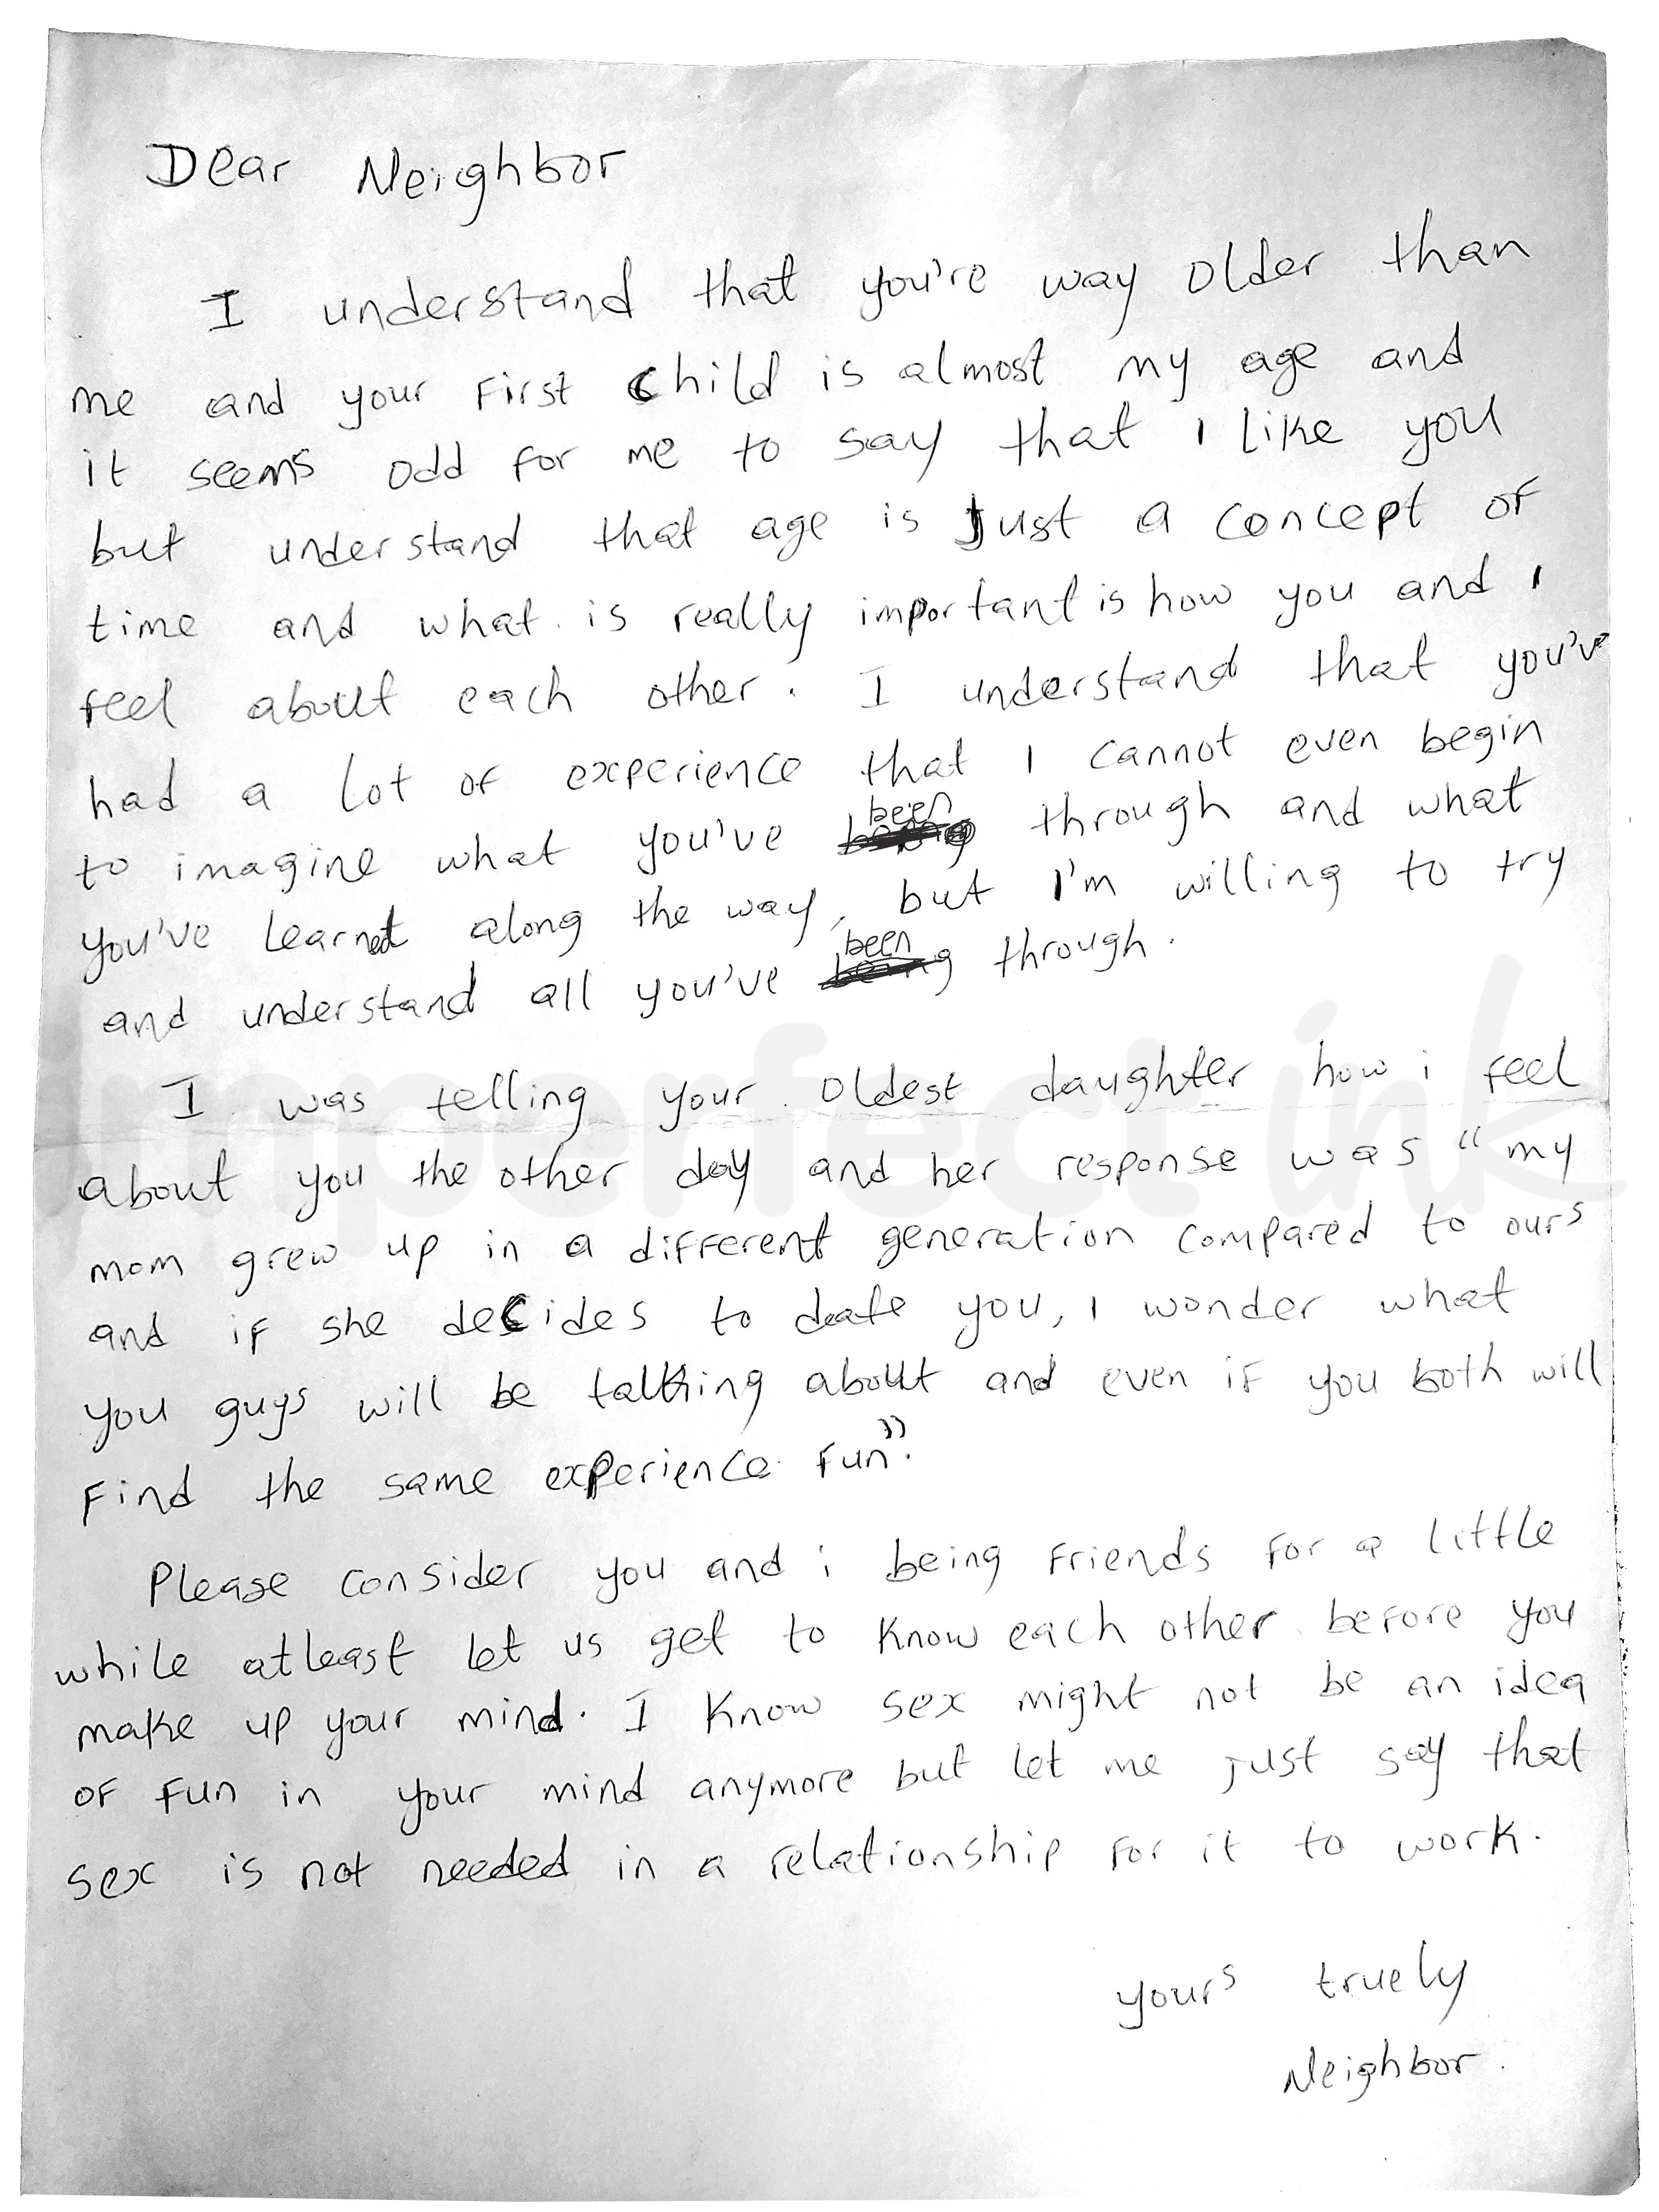 Dear Neighbor
I understand that you're way older than
me and your first child is almost my age and
it seems odd for me to say that I like you
but understand that age is Just a concept of
time and what is really important is how you and I
feel about each other. I understand that you've
had a lot of experience that I cannot even begin
to imagine what you've been through and what
you've learned along the way, but I'm willing to try
and understand all you've been through.
I was telling your oldest daughter how i feel
about you the other day and her response was "my
mom grew up in a different generation compared to ours
and if she decides to date you, I wonder what
you guys will be talking about and even if you both will
find the same experience fun".
Please consider you and i being friends for a little
while atleast let us get to know each other before you
make up your mind. I know sex might not be an idea
of fun in your mind anymore but let me just say that
sex is not needed in a relationship for it to work.
yours truely
Neighbor.
imperfect ink